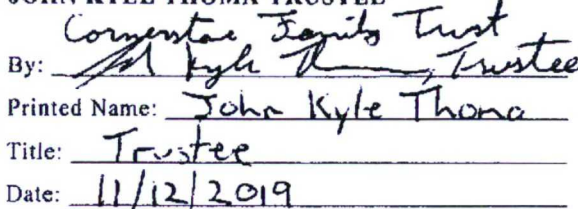 JOHN KYLE THOMA TRUSTEE
Cornerstone Family Trust
By: Kyle Thoma, Trustee
Printed Name: John Kyle Thoma
Title: Trustee
Date: 11/12/2019